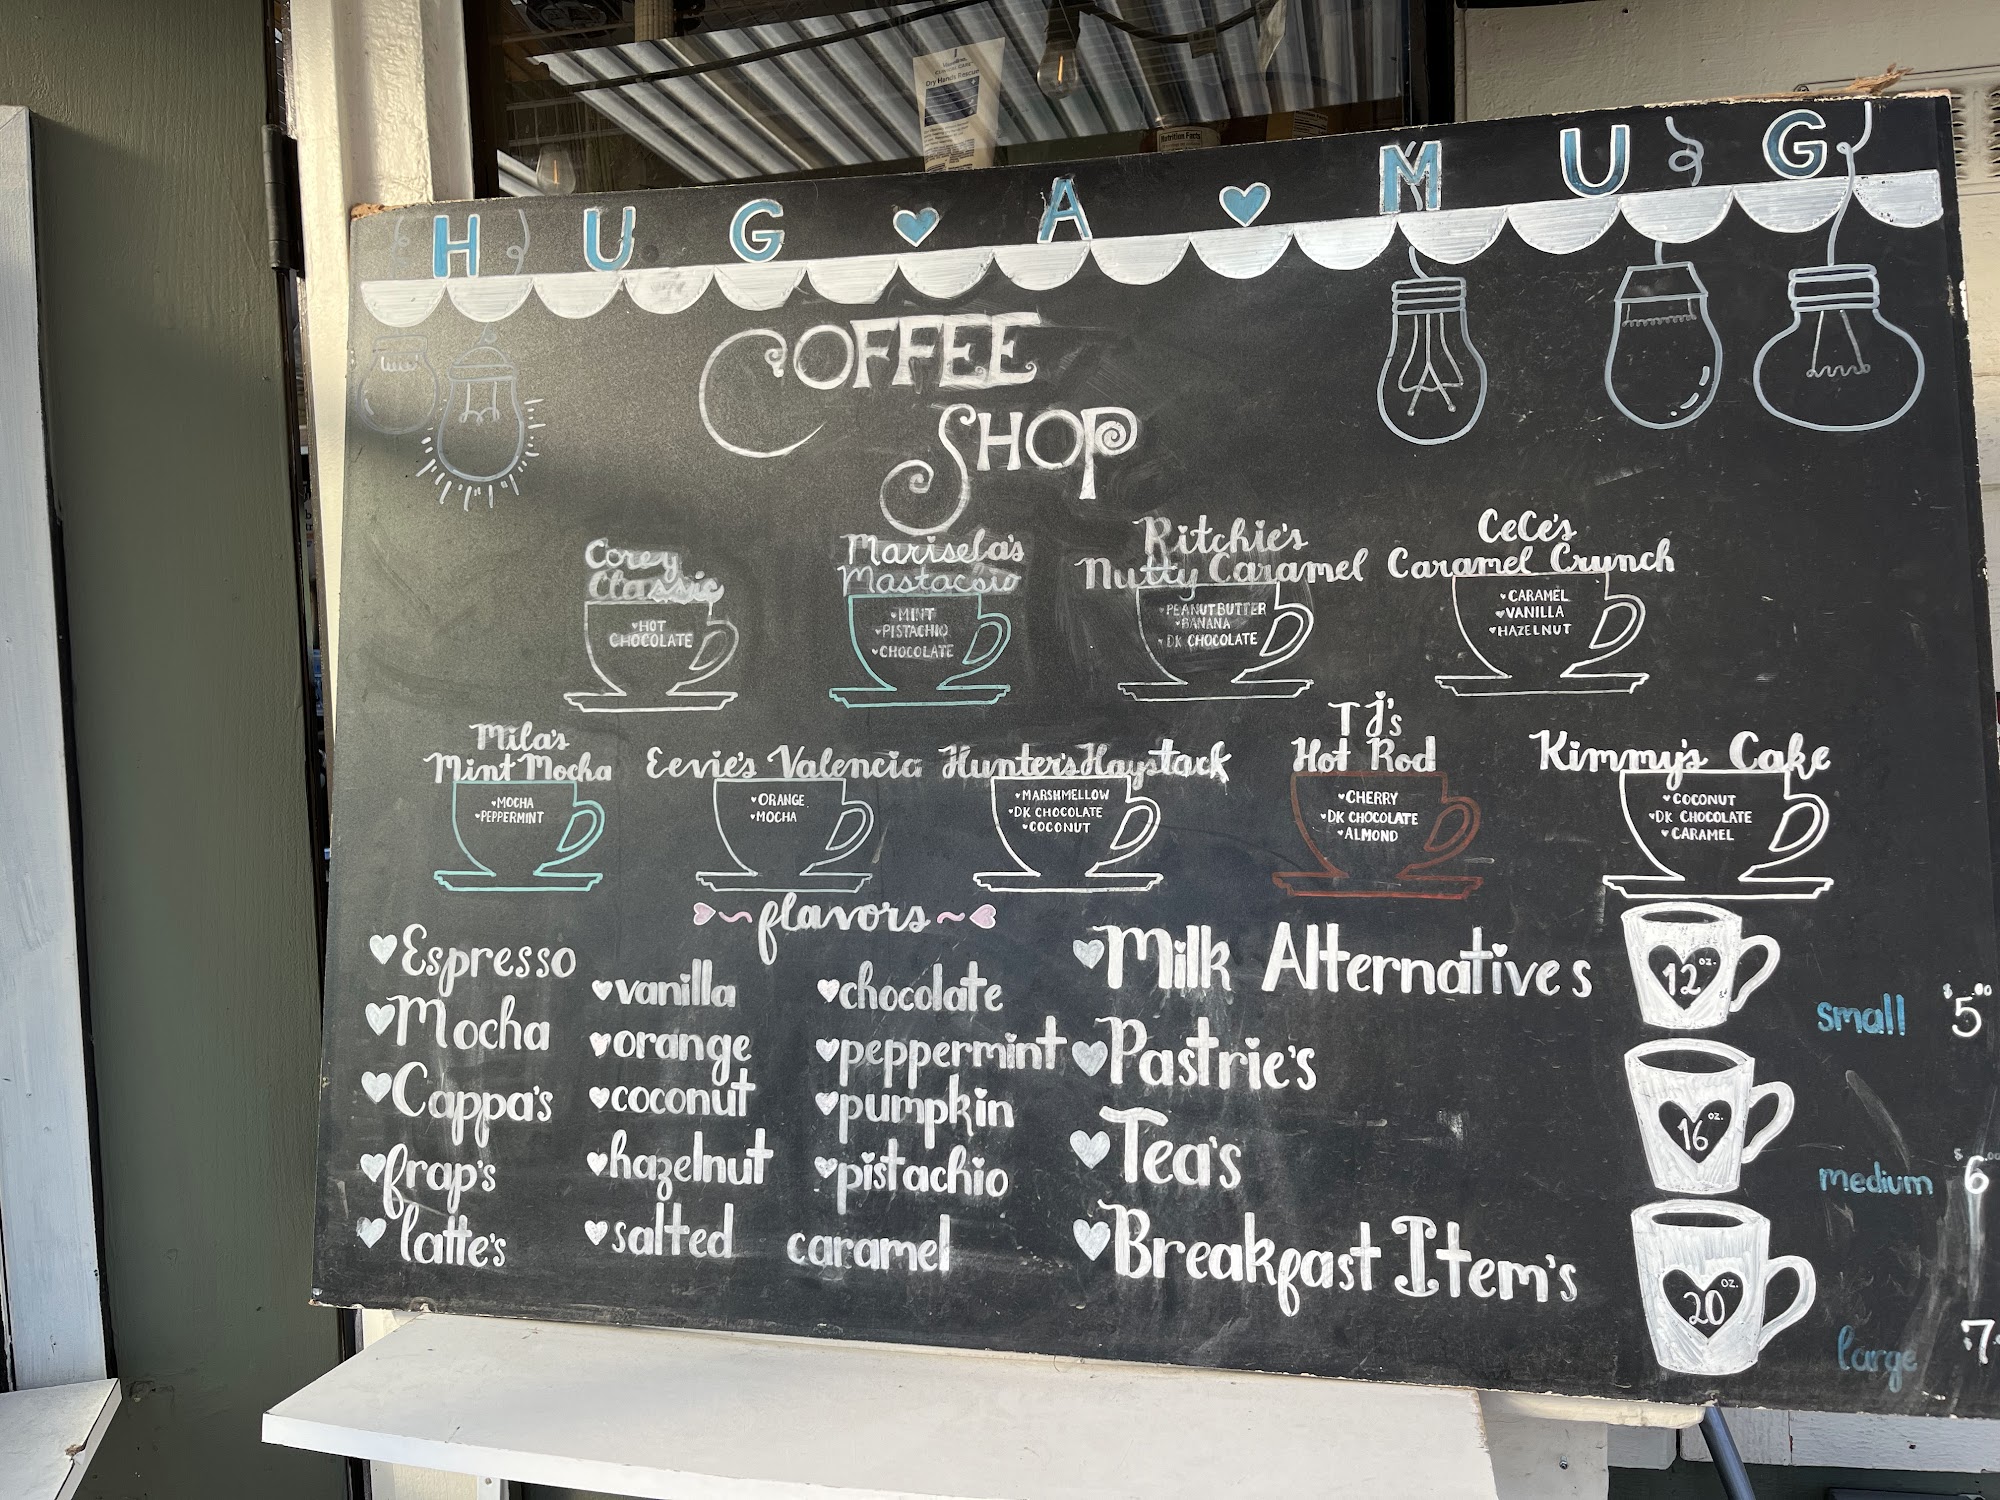 Dry Hands Rescue
Nutrition Facts
HUG A MUG
COFFEE
SHOP
Corey
Classic
HOT
CHOCOLATE
Marisela's
Mastacsio
MINT
PISTACHIO
CHOCOLATE
Ritchie's
Nutty Caramel
PEANUT BUTTER
BANANA
DK CHOCOLATE
CeCe's
Caramel Crunch
CARAMEL
VANILLA
HAZELNUT
Mila's
Mint Mocha
MOCHA
PEPPERMINT
Eevie's Valencia
ORANGE
MOCHA
Hunter's Haystack
MARSHMELLOW
DK CHOCOLATE
COCONUT
TJ's
Hot Rod
CHERRY
DK CHOCOLATE
ALMOND
Kimmy's Cake
COCONUT
DK CHOCOLATE
CARAMEL
Espresso
Mocha
Cappa's
frap's
latte's
flavors
vanilla
orange
coconut
hazelnut
salted caramel
chocolate
peppermint
pumpkin
pistachio
Milk Alternatives
Pastrie's
Tea's
Breakfast Item's
12 oz. small $5.00
16 oz. medium $6.00
20 oz. large 7